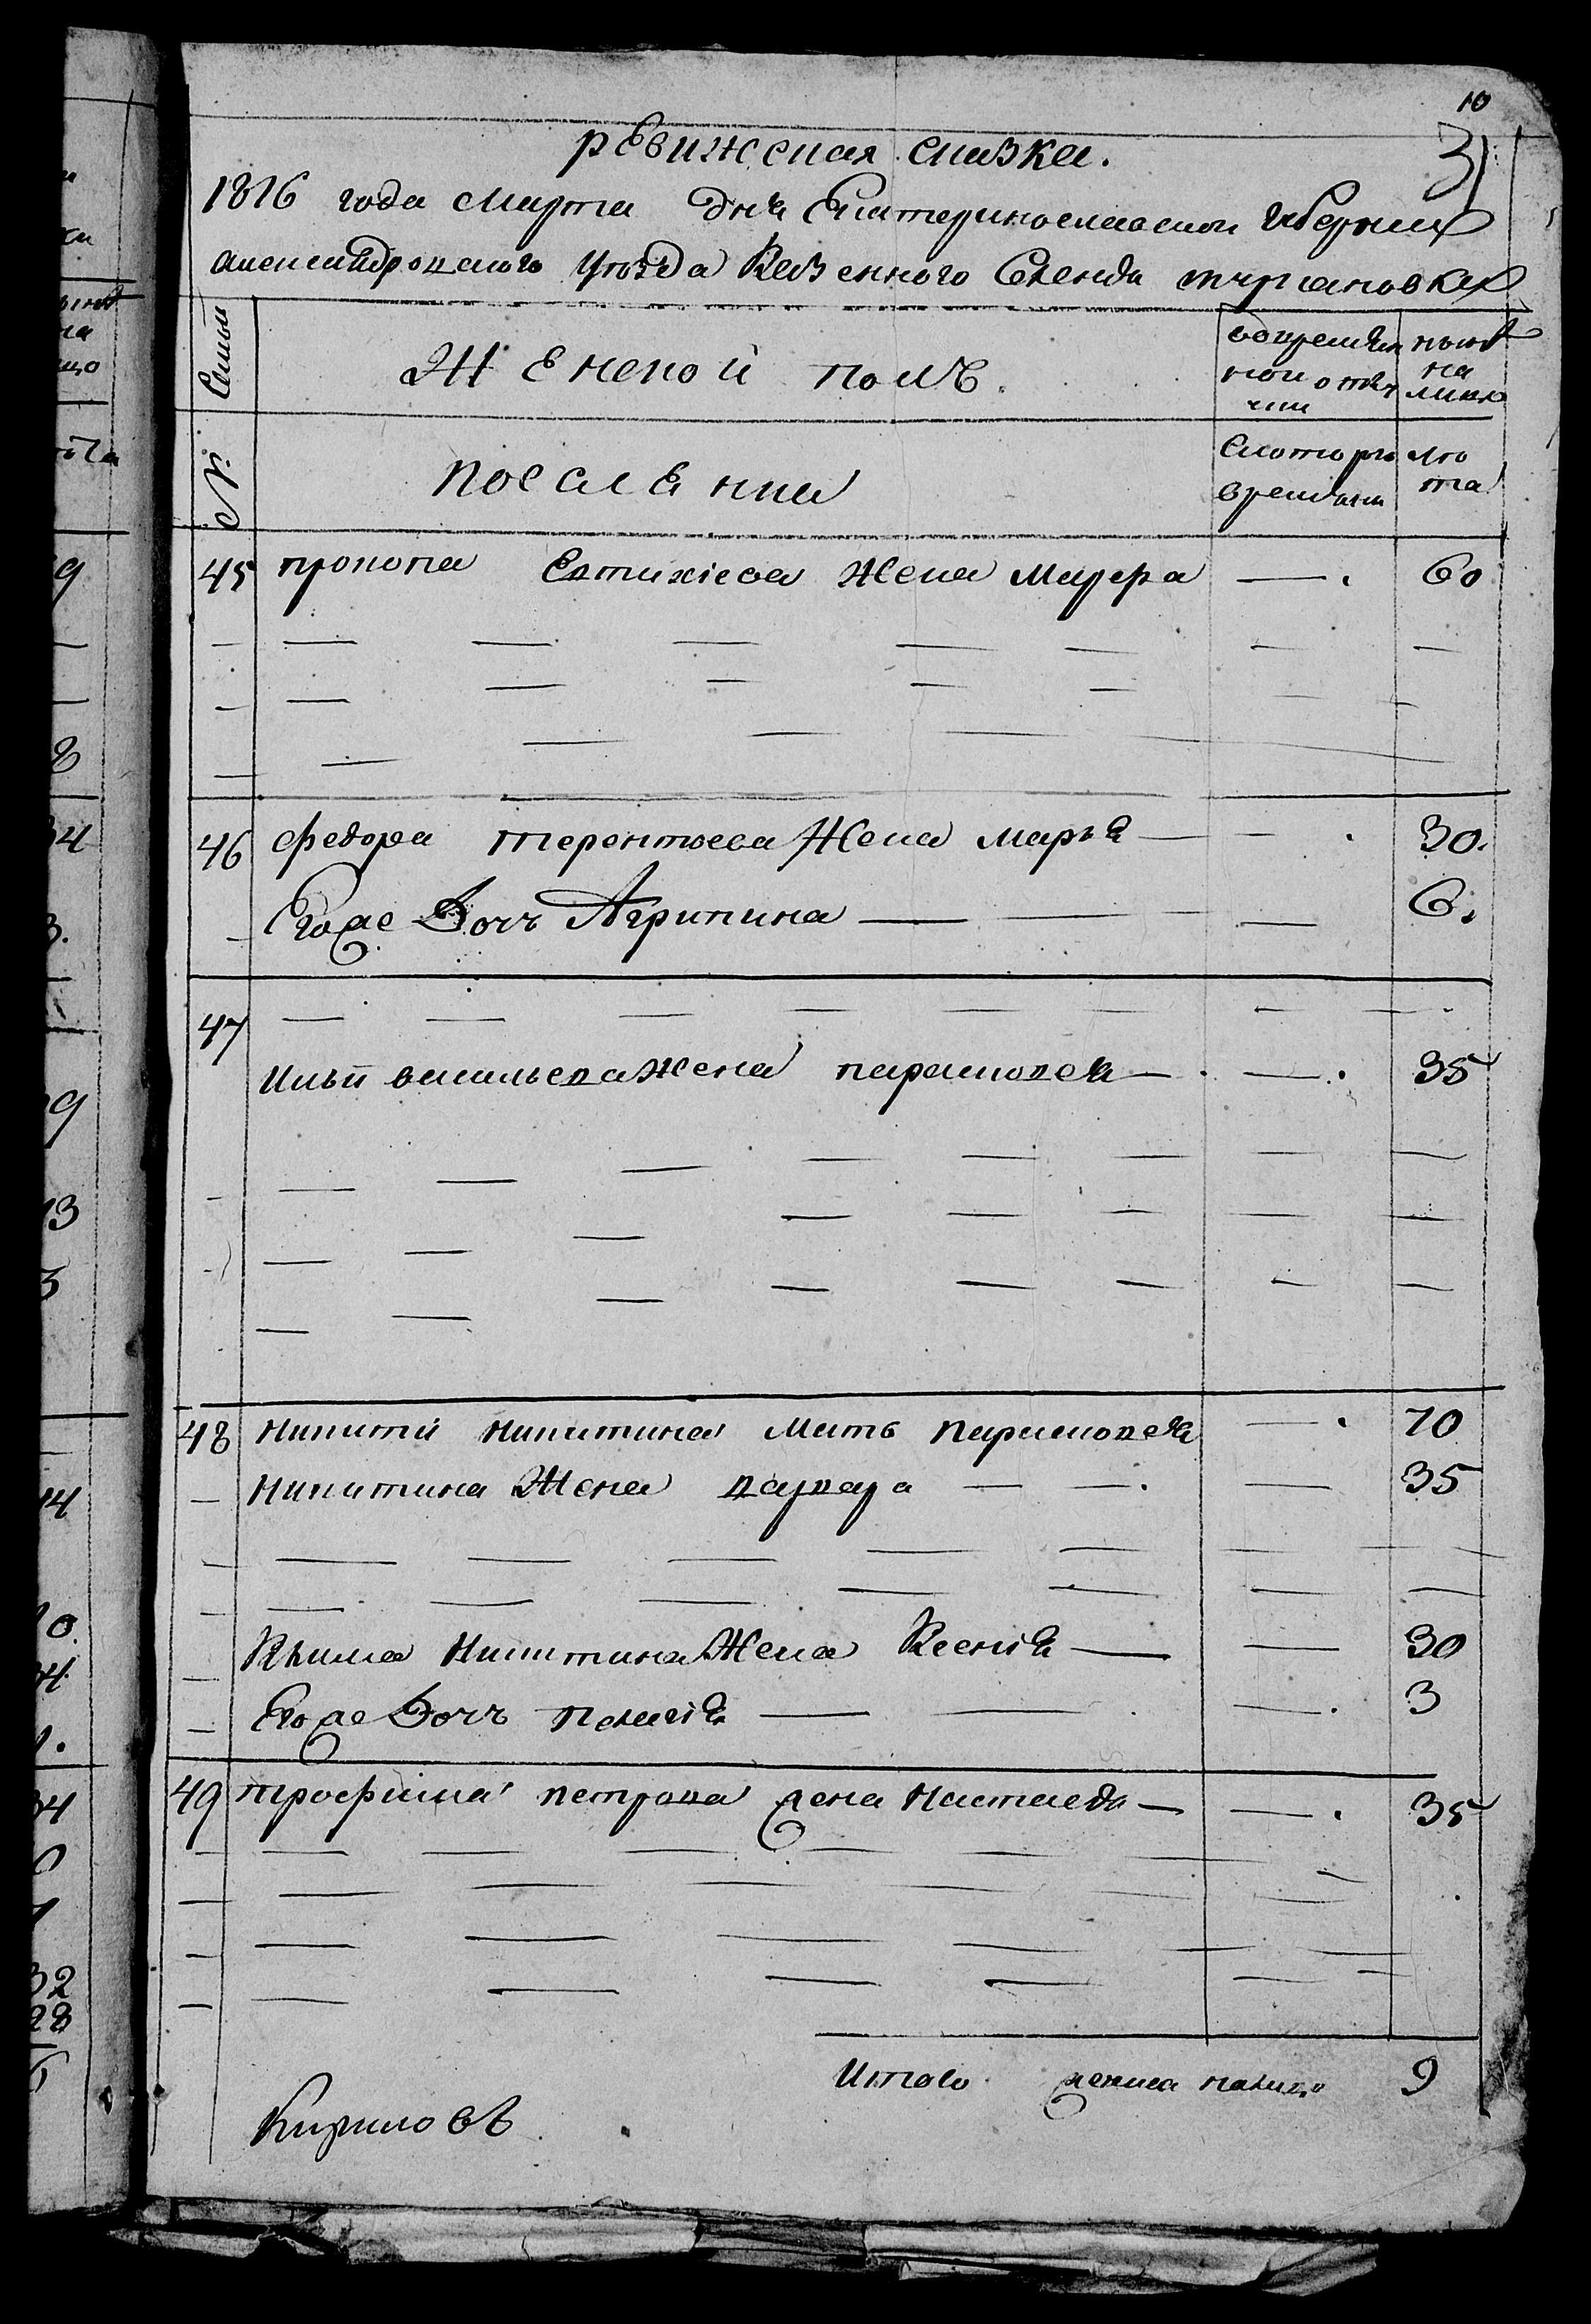 10
31
ревижская сказка.
1816 года Марта дня Екатеринославской губернии
александровского уезда казенного селения туркановки
Семьи
Женской полъ.
во временной отлучки
ныне на лицо
№.
поселяния
с которого времени
лѣта
45 прокопа Евтихіева Жена Мавра — 60
46 федора терентьева Жена марья — 30.
Егоже Дочь Агрипина — 6.
47
Ильи васильева Жена парасковея — 35
48 никиты никитина Мать парасковея — 70
никитина Жена варвара — 35
якима Никитина Жена Ксенія — 30
Егоже Дочь пелагія — 3
49 трофима петрова жена настасея — 35
Итого женска налицо 9
Кирилов
9
8
34
3.
9
13
3
14
10.
34.
1.
34
32
28